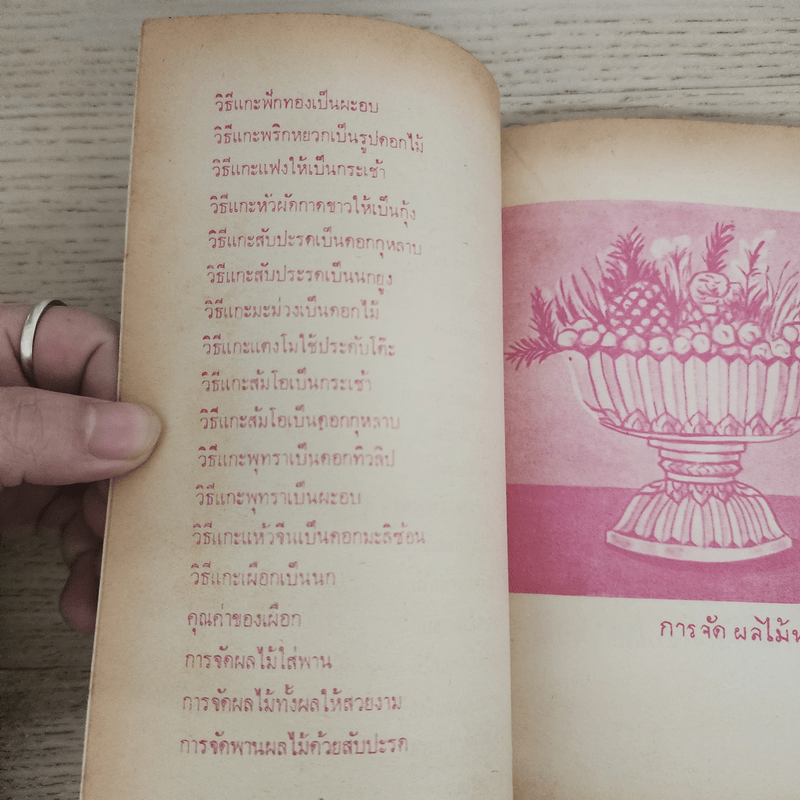 วิธีแกะฟักทองเป็นผะอบ
วิธีแกะพริกหยวกเป็นรูปดอกไม้
วิธีแกะแฟงให้เป็นกระเช้า
วิธีแกะหัวผักกาดขาวให้เป็นกุ้ง
วิธีแกะสับปะรดเป็นดอกกุหลาบ
วิธีแกะสับประรดเป็นนกยูง
วิธีแกะมะม่วงเป็นดอกไม้
วิธีแกะแตงโมใช้ประดับโต๊ะ
วิธีแกะส้มโอเป็นกระเช้า
วิธีแกะส้มโอเป็นดอกกุหลาบ
วิธีแกะพุทราเป็นดอกทิวลิป
วิธีแกะพุทราเป็นผะอบ
วิธีแกะแห้วจีนเป็นดอกมะลิซ้อน
วิธีแกะเผือกเป็นนก
คุณค่าของเผือก
การจัดผลไม้ใส่พาน
การจัดผลไม้ทั้งผลให้สวยงาม
การจัดพานผลไม้ด้วยสับปะรด
การจัด ผลไม้